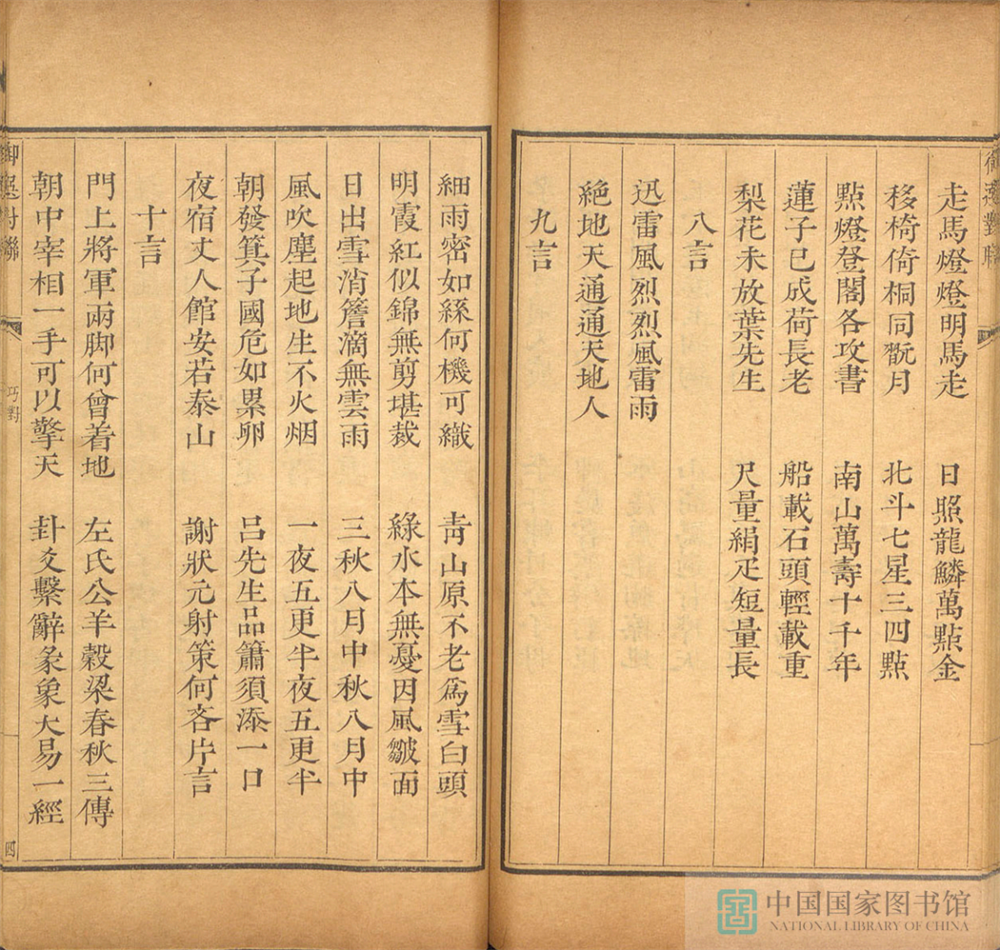 走馬燈燈明馬走　日照龍鱗萬點金
移椅倚桐同翫月　北斗七星三四點
點燈登閣各攻書　南山萬壽十千年
蓮子已成荷長老　船載石頭輕載重
梨花未放葉先生　尺量絹疋短量長
八言
迅雷風烈烈風雷雨
絶地天通通天地人
九言
細雨密如絲何機可織　青山原不老爲雪白頭
明霞紅似錦無剪堪裁　綠水本無憂因風皺面
日出雪消簷滴無雲雨　三秋八月中秋八月中
風吹塵起地生不火烟　一夜五更半夜五更半
朝發箕子國危如累卵　呂先生品簫須添一口
夜宿丈人館安若泰山　謝狀元射策何吝片言
十言
門上將軍兩脚何曾着地　左氏公羊穀梁春秋三傳
朝中宰相一手可以擎天　卦爻繫辭彖象大易一經
對聯
巧對
四
中国国家图书馆
NATIONAL LIBRARY OF CHINA